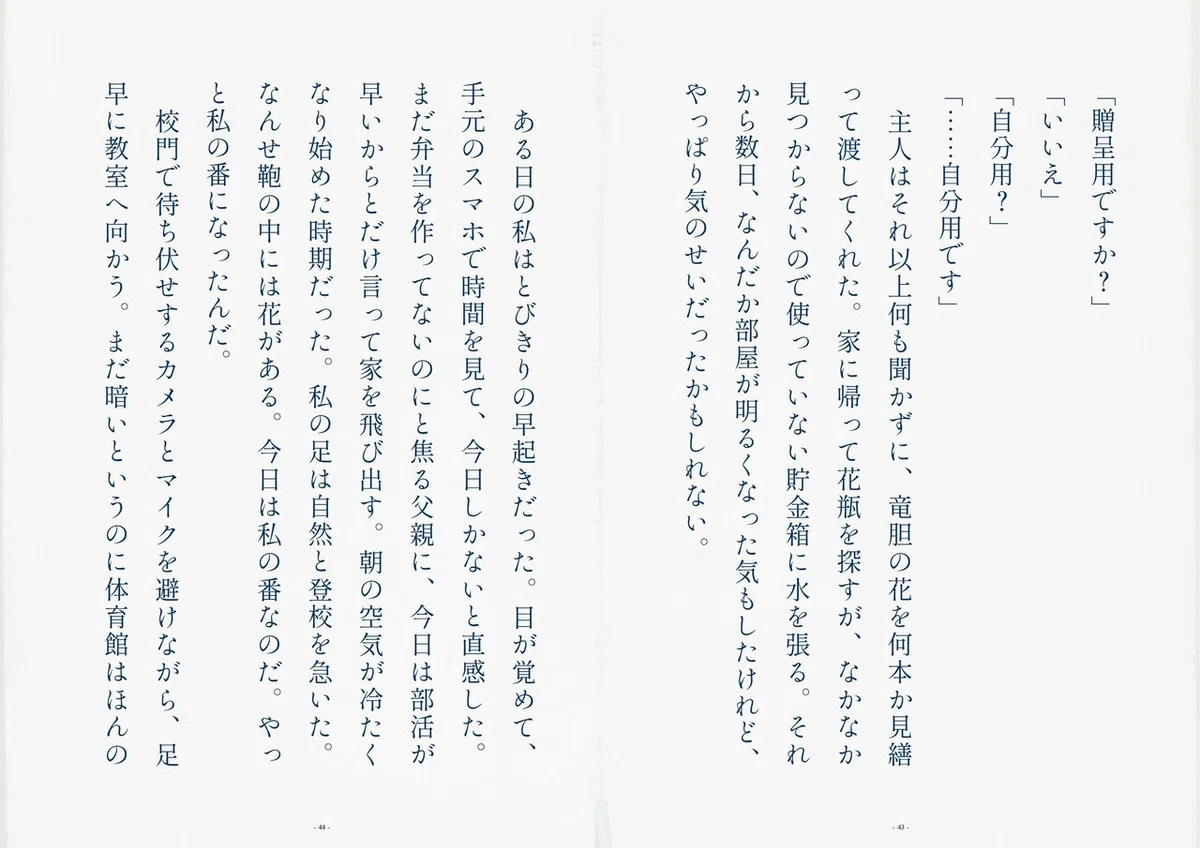 「贈呈用ですか？」
「いいえ」
「自分用？」
「……自分用です」
　主人はそれ以上何も聞かずに、竜胆の花を何本か見繕
って渡してくれた。家に帰って花瓶を探すが、なかなか
見つからないので使っていない貯金箱に水を張る。それ
から数日、なんだか部屋が明るくなった気もしたけれど、
やっぱり気のせいだったかもしれない。
- 43 -
　ある日の私はとびきりの早起きだった。目が覚めて、
手元のスマホで時間を見て、今日しかないと直感した。
まだ弁当を作ってないのにと焦る父親に、今日は部活が
早いからとだけ言って家を飛び出す。朝の空気が冷たく
なり始めた時期だった。私の足は自然と登校を急いた。
なんせ鞄の中には花がある。今日は私の番なのだ。やっ
と私の番になったんだ。
　校門で待ち伏せするカメラとマイクを避けながら、足
早に教室へ向かう。まだ暗いというのに体育館はほんの
- 44 -